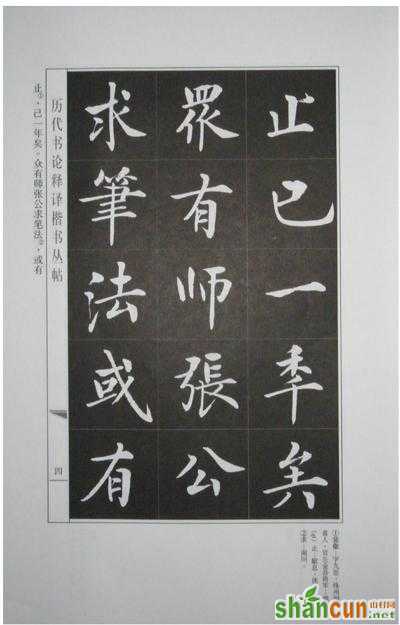 止已一秊矣
眾有师張公
求筆法或有
历代书论释译楷书丛帖
四
止。已一年矣。众有师张公求笔法，或有
shancun
山村网
.net